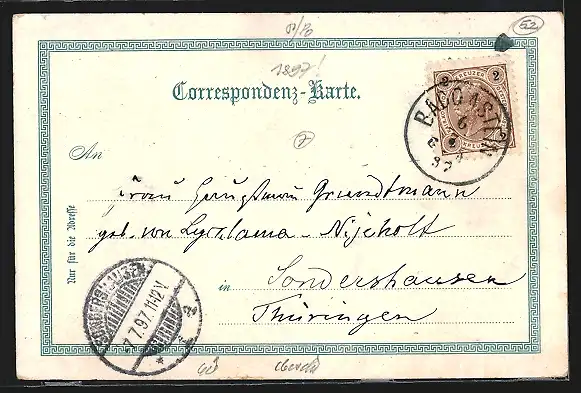 52
1897!
Correspondenz-Karte.
2 KREUZER 2
BAD AUSSEE
6
97
An
Frau Hauptmann Grundtmann
geb. von Lycklama - Nijeholt
Nur für die Adresse
in Sondershausen
Thüringen
SONDERSHAUSEN
7.7.97.11-12V.